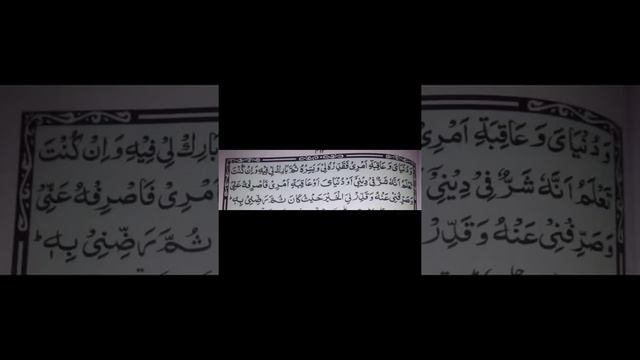 وَدُنْيَاىَ وَعَاقِبَةِ اَمْرِىْ فَقَدِّرْهُ لِىْ وَيَسِّرْهُ ثُمَّ بَارِكْ لِىْ فِيْهِ وَاِنْ كُنْتَ
تَعْلَمُ اَنَّهٗ شَرٌّ فِىْ دِيْنِىْ اَوْ دُنْيَاىَ اَوْ عَاقِبَةِ اَمْرِىْ فَاصْرِفْهُ عَنِّىْ
وَصَرِّفْنِىْ عَنْهُ وَقَدِّرْ لِىَ الْخَيْرَ حَيْثُ كَانَ ثُمَّ رَضِّنِىْ بِهٖ ط